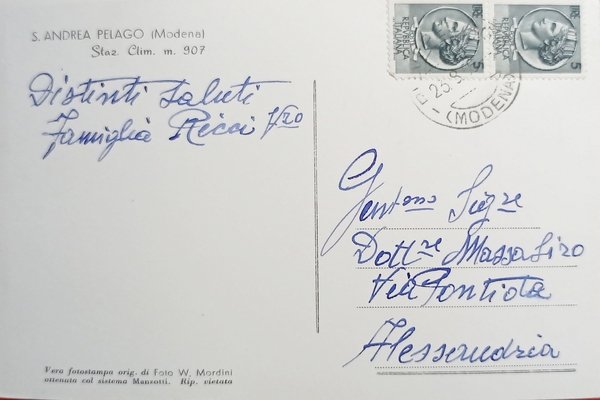 S. ANDREA PELAGO (Modena)
Staz. Clim. m. 907
Distinti saluti
Famiglia Ricci
REPUBBLICA ITALIANA
5
5
25
(MODENA)
Gentmo Sigre
Dottre Massa Siro
Via Pontida
Alessandria
Vera fotostampa orig. di Foto W. Mordini
ottenuta col sistema Manzotti. Rip. vietata